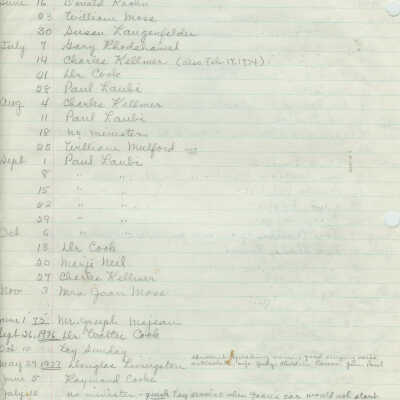 June 16 Donald Krohn
23 William Moss
30 Susan Langenfelder
July 7 Gary Rhodehamel
14 Charles Kellmer (also Feb. 17, 1974)
21 Dr Cook
28 Paul Laube
Aug 4 Charles Kellmer
11 Paul Laube
18 no minister
25 William Mulford
Sept 1 Paul Laube
8 " "
15 " "
22 " "
29 " "
Oct 6 "
13 Dr Cook
20 Marje Neil
27 Charles Kellmer
Nov 3 Mrs Joan Moss
June 1 75 Mr. Joseph
Sept 26, 1976 Dr Walter Cook
Oct 10 Lay Sunday
May 29 1977 Douglas Livingston
June 5 Raymond Cooke
July 10 no minister - quick lay service when car would not start